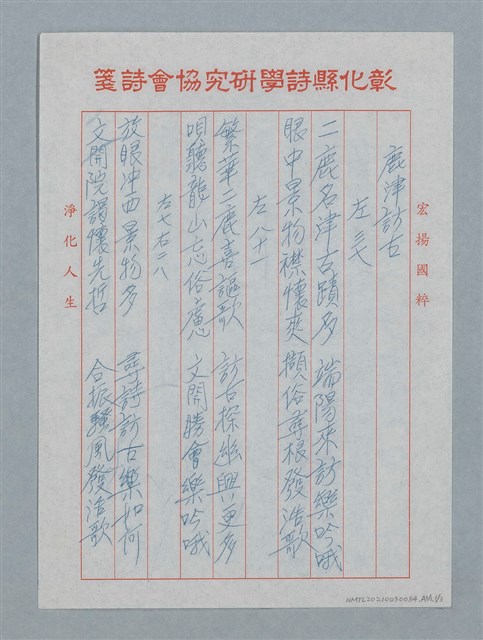 彰化縣詩學研究協會詩箋
宏揚國粹
鹿津訪古
左 三六
二鹿名津古蹟多 端陽來訪樂吟哦
眼中景物襟懷爽 擷俗尋根發浩歌
左 八十一
繁華二鹿喜謳歌 訪古探幽興更多
唄聽龍山忘俗慮 文開勝會樂吟哦
左七右二八
放眼冲西景物多 尋詩訪古樂如何
文開院謁懷先哲 合振騷風發浩歌
淨化人生